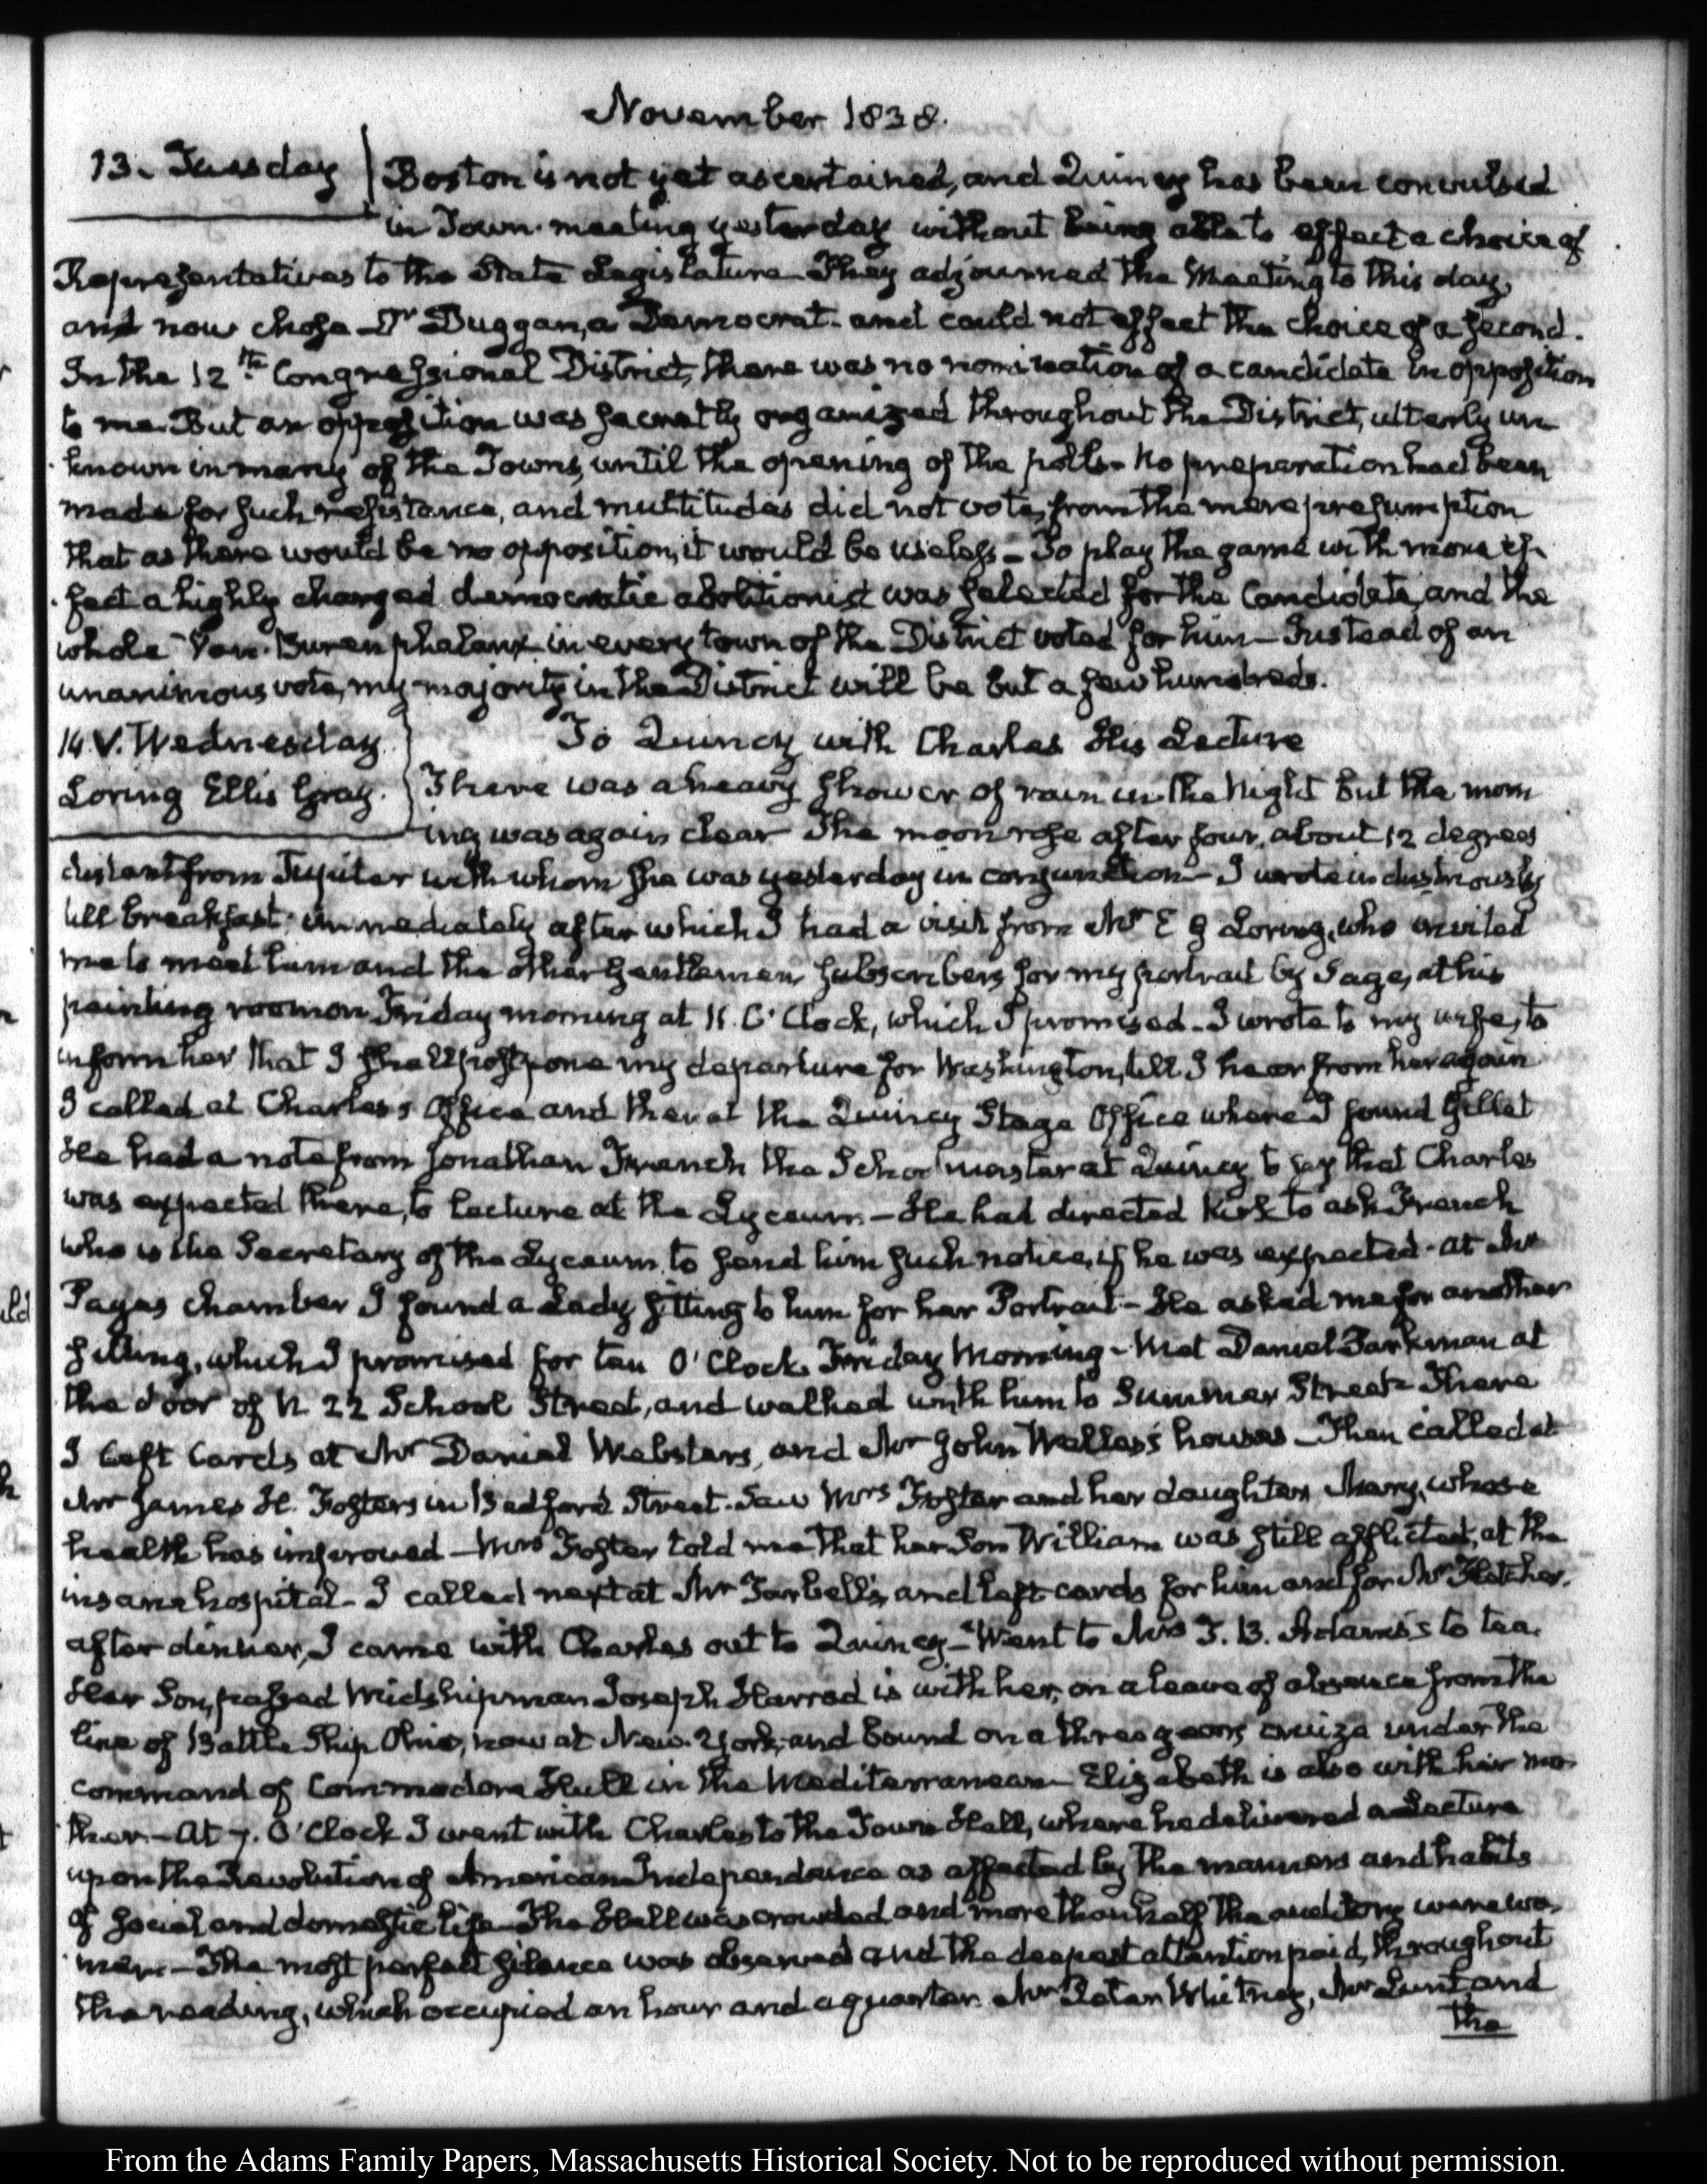 November 1838.
13. Tuesday
Boston is not yet ascertained, and Quincy has been convulsed
in Town-meeting yesterday without being able to effect a choice of
Representatives to the State Legislature. They adjourned the Meeting to this day,
and now chose Dr Duggan, a Democrat. and could not effect the choice of a second.
In the 12th Congressional District, there was no nomination of a candidate in opposition
to me. But an opposition was secretly organized throughout the District, utterly un
known in many of the Towns, until the opening of the polls. No preparation had been
made for such resistance, and multitudes did not vote, from the mere presumption
that as there would be no opposition, it would be useless— To play the game with more ef-
fect a highly charged democratic abolitionist was selected for the Candidate, and the
whole Van-Buren phalanx in every town of the District voted for him— Instead of an
unanimous vote, my majority in the District will be but a few hundreds.
14. V. Wednesday
Loring Ellis Gray.
To Quincy with Charles His Lecture
There was a heavy shower of rain in the Night but the morn
ing was again clear The moon rose after four, about 12 degrees
distant from Jupiter with whom she was yesterday in conjunction— I wrote industriously
till breakfast; immediately after which I had a visit from Mr E G Loring, who invited
me to meet him and the other Gentlemen, subscribers for my portrait by Page, at his
painting room on Friday morning at 11. O'Clock, which I promised. I wrote to my wife, to
inform her that I shall postpone my departure for Washington, till I hear from her again
I called at Charles's Office and then at the Quincy Stage Office where I found Gillet
He had a note from Jonathan French the School master at Quincy to say that Charles
was expected there, to lecture at the Lyceum— He had directed Kirk to ask French
who is the Secretary of the Lyceum, to send him such notice, if he was expected. At Mr
Pages chamber I found a Lady sitting to him for her Portrait— He asked me for another
sitting, which I promised for ten O'Clock Friday Morning— Met Daniel Parkman at
the door of N. 22 School Street, and walked with him to Summer Street— There
I left Cards at Mr Daniel Websters, and Mr John Welles's houses— Then called at
Mr James H. Fosters in Bedford Street. Saw Mrs Foster and her daughter Mary, whose
health has improved— Mrs Foster told me that her Son William was still afflicted, at the
insane hospital— I called next at Mr Tarbell's, and left cards for him and for Mr Fletcher.
after dinner, I came with Charles out to Quincy— Went to Mrs T. B. Adams's to tea.
Her Son, passed Midshipman Joseph Harrod is with her, on a leave of absence from the
line of Battle Ship Ohio, now at New-York, and bound on a three years cruize under the
command of Commodore Hull in the Mediterranean— Elizabeth is also with her mo-
ther.— At 7. O'Clock I went with Charles to the Town Hall, where he delivered a Lecture
upon the Revolution of American Independence as affected by the manners and habits
of social and domestic life— The Hall was crowded and more than half the auditory were wo-
men.— The most perfect silence was observed and the deepest attention paid, throughout
the reading, which occupied an hour and a quarter. Mr Peter Whitney, Mr Lunt, and
the
From the Adams Family Papers, Massachusetts Historical Society. Not to be reproduced without permission.